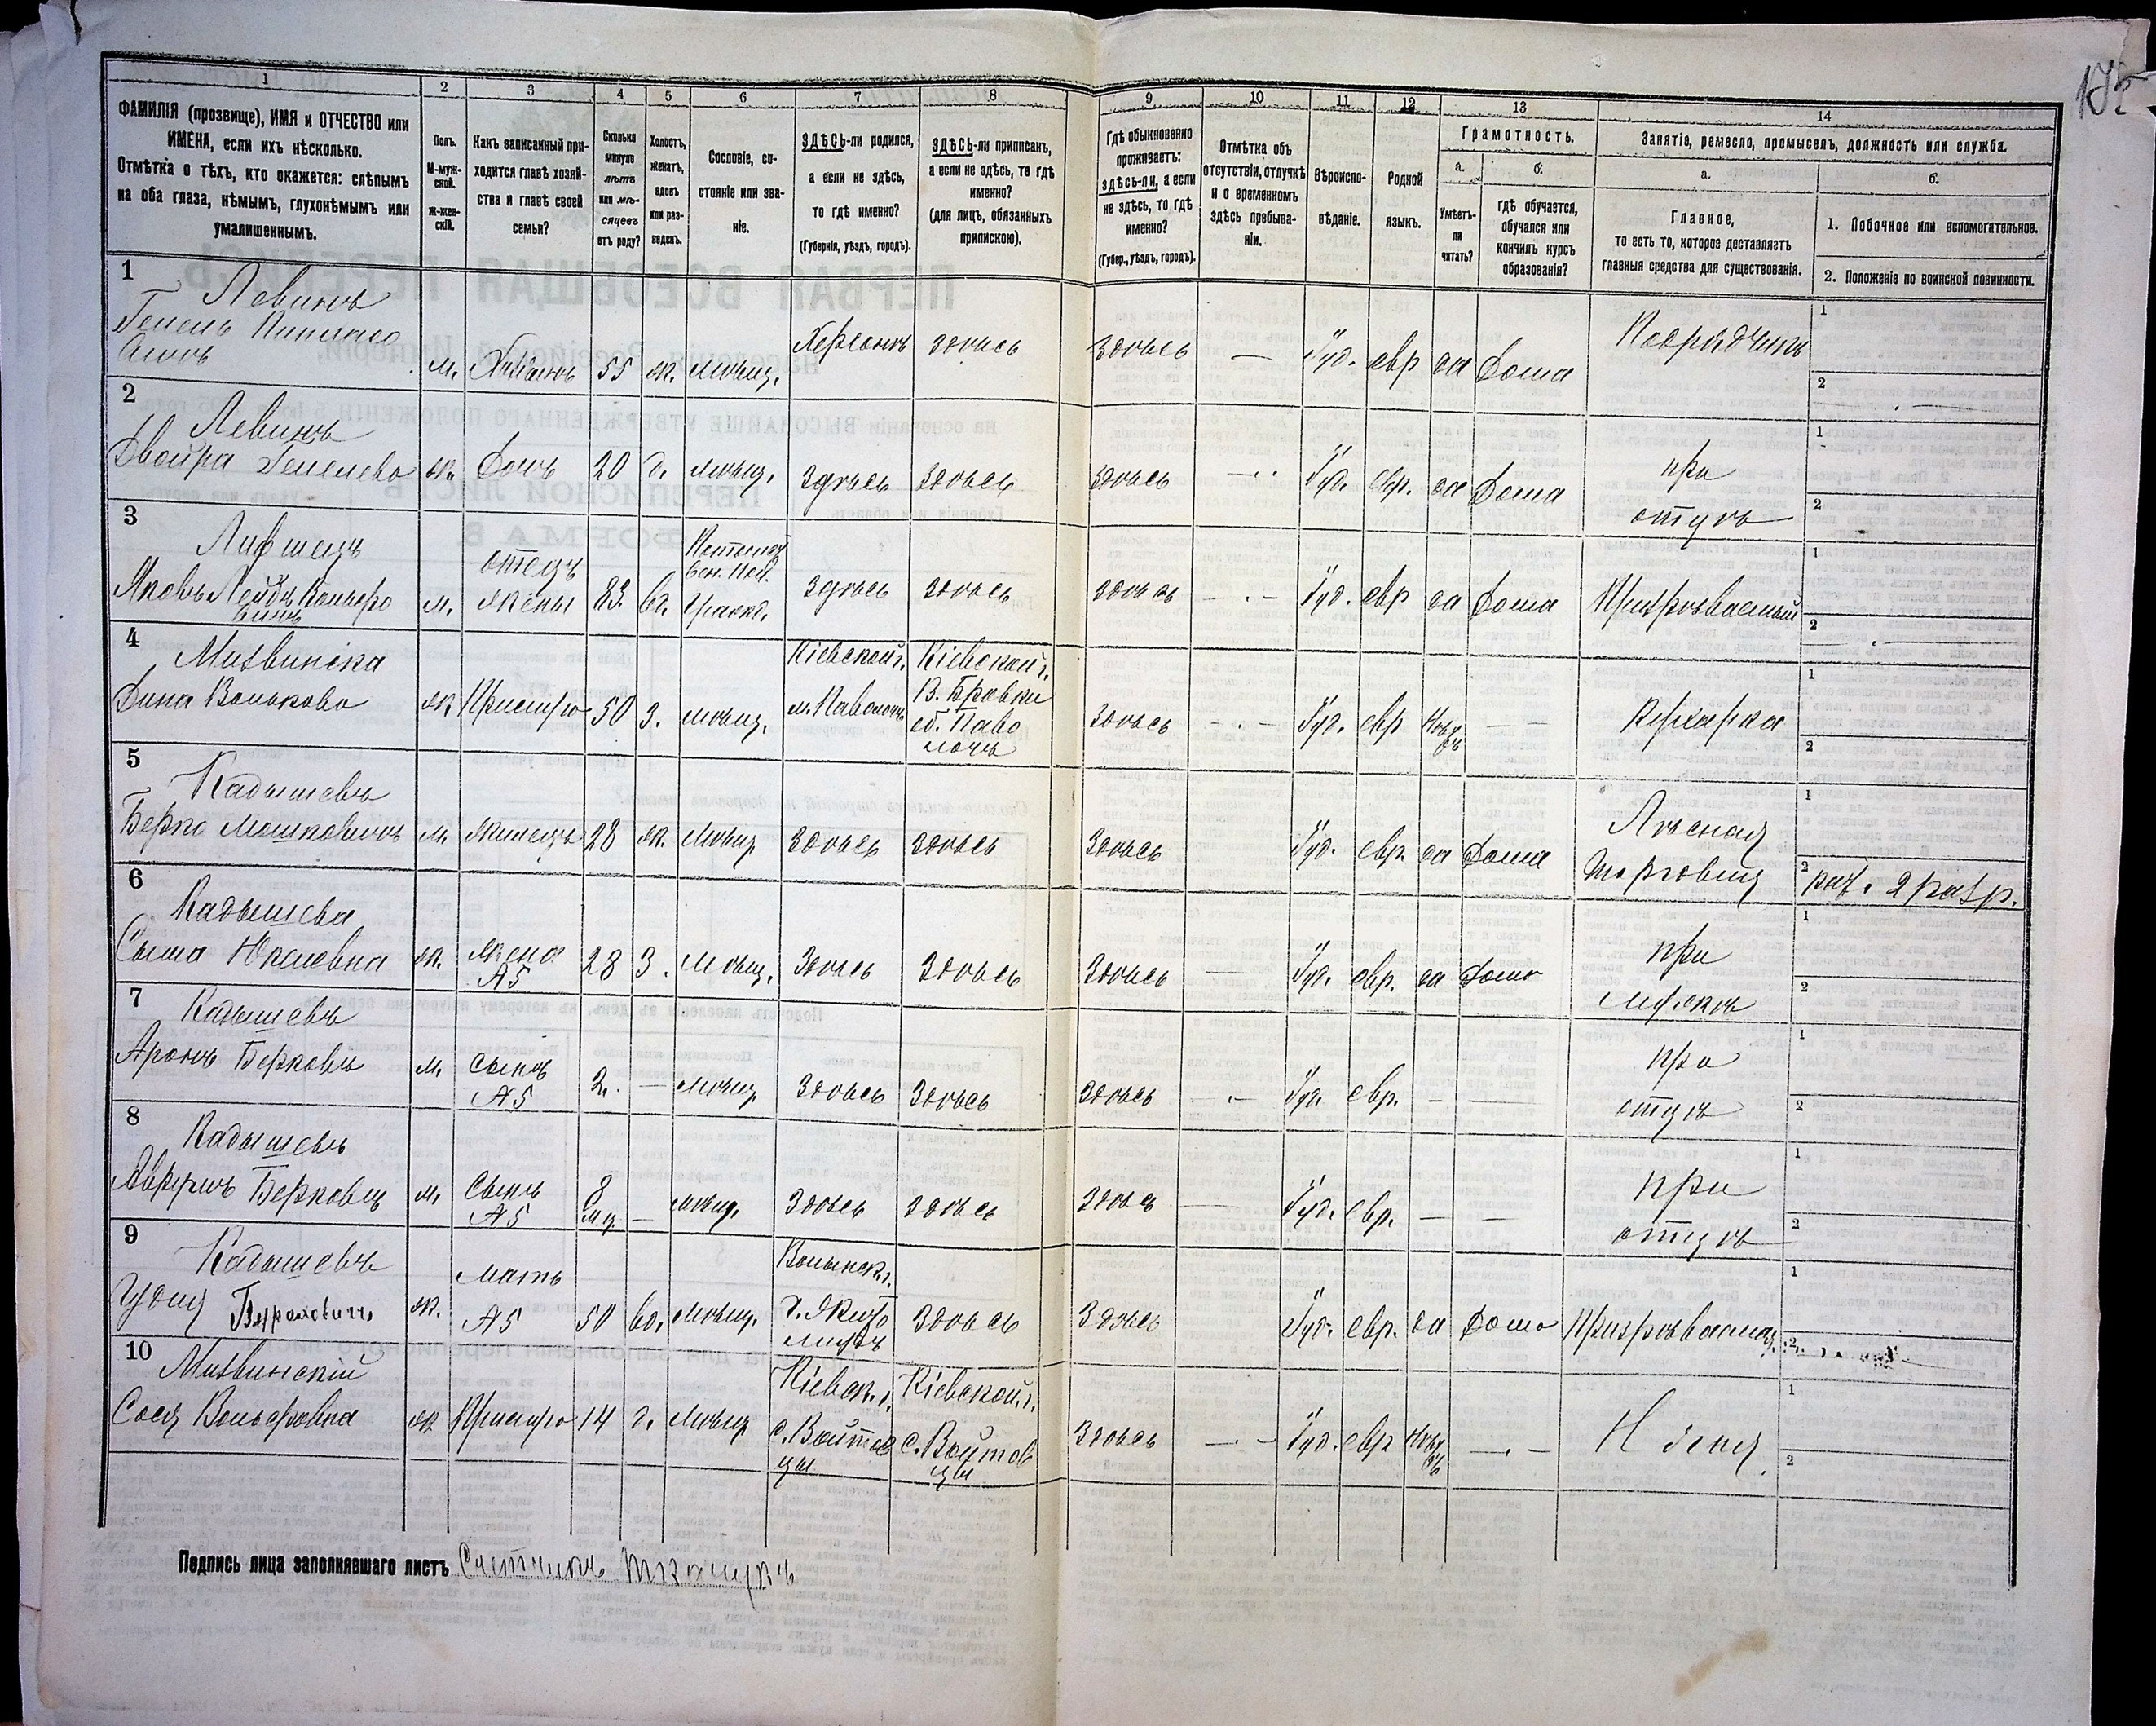 175
1 2 3 4 5 6 7 8 9 10 11 12 13 14
ФАМИЛІЯ (прозвище), ИМЯ и ОТЧЕСТВО или
ИМЕНА, если ихъ нѣсколько.
Отмѣтка о тѣхъ, кто окажется: слѣпымъ
на оба глаза, нѣмымъ, глухонѣмымъ или
умалишеннымъ.
Полъ.
М-муж-
ской.
Ж-жен-
скій.
Какъ записанный при-
ходится главѣ хозяй-
ства и главѣ своей
семьи?
Сколько
минуло
лѣтъ
или мѣ-
сяцевъ
отъ роду?
Холостъ,
женатъ,
вдовъ
или раз-
веденъ.
Сословіе, со-
стояніе или зва-
ніе.
ЗДѢСЬ-ли родился,
а если не здѣсь,
то гдѣ именно?
(Губернія, уѣздъ, городъ).
ЗДѢСЬ-ли приписанъ,
а если не здѣсь, то гдѣ
именно?
(для лицъ, обязанныхъ
припискою).
Гдѣ обыкновенно
проживаетъ:
здѣсь-ли, а если
не здѣсь, то гдѣ
именно?
(Губер., уѣздъ, городъ).
Отмѣтка объ
отсутствіи, отлучкѣ
и о временномъ
здѣсь пребыва-
ніи.
Вѣроиспо-
вѣданіе.
Родной
языкъ.
Грамотность.
а.
Умѣетъ-
ли
читать?
б.
гдѣ обучается,
обучался или
кончилъ курсъ
образованія?
Занятіе, ремесло, промыселъ, должность или служба.
а.
Главное,
то есть то, которое доставляетъ
главныя средства для существованія.
б.
1. Побочное или вспомогательное.
2. Положеніе по воинской повинности.
1
Левинъ
м. Хозяинъ 55 ж. мѣщ. Херсонъ здѣсь здѣсь — Іуд. евр да дома Подрядчикъ
1
2 —
2
Левинъ
Двойра ж. дочь 20 д. мѣщ. здѣсь здѣсь здѣсь — Іуд. евр. да дома при
отцѣ
1
2
3
Лифшецъ
Яковъ Лейбъ
м. отецъ
жены 83 вд. Гражд. здѣсь здѣсь здѣсь — Іуд. евр да дома Призрѣваемый
1
2 —
4
Мизвинска
Дина Вольково ж. 50 з. мѣщ. Кіевской г.
м. Паволочь Кіевской г.
об. Паво
лочь здѣсь — Іуд. евр — — Кухарка
1
2
5
Кадышевъ
Берко Мошковичъ м. жилецъ 28 ж. мѣщ здѣсь здѣсь здѣсь Іуд. евр. да дома Лѣсная
торговля
1
2 рат. 2 разр.
6
Кадышева
Сыма ж. жена
№5 28 з. мѣщ. здѣсь здѣсь здѣсь — Іуд. евр. да дома при
мужѣ
1
2
7
Кадышевъ
Аронъ Берковъ м. сынъ
№5 2 — мѣщ здѣсь здѣсь здѣсь — Іуд. евр. — — при
отцѣ
1
2
8
Кадышевъ
Берковъ м. сынъ
№5 8
мц. — мѣщ. здѣсь здѣсь здѣсь — Іуд. евр. — — при
отцѣ
1
2
9
Кадышевъ
ж. мать
№5 50 вд. мѣщ. Волынск. г.
г. Жито
миръ здѣсь здѣсь Іуд. евр. да дома Призрѣваемая
1
2
10
Мизвинскій
Сося Вольфовна ж 14 д. мѣщ Кіевск. г.
с. Войтов
цы Кіевской г.
с. Войтов
цы здѣсь — Іуд. евр —
1
2
Подпись лица заполнявшаго листъ Счетчикъ Ткачукъ